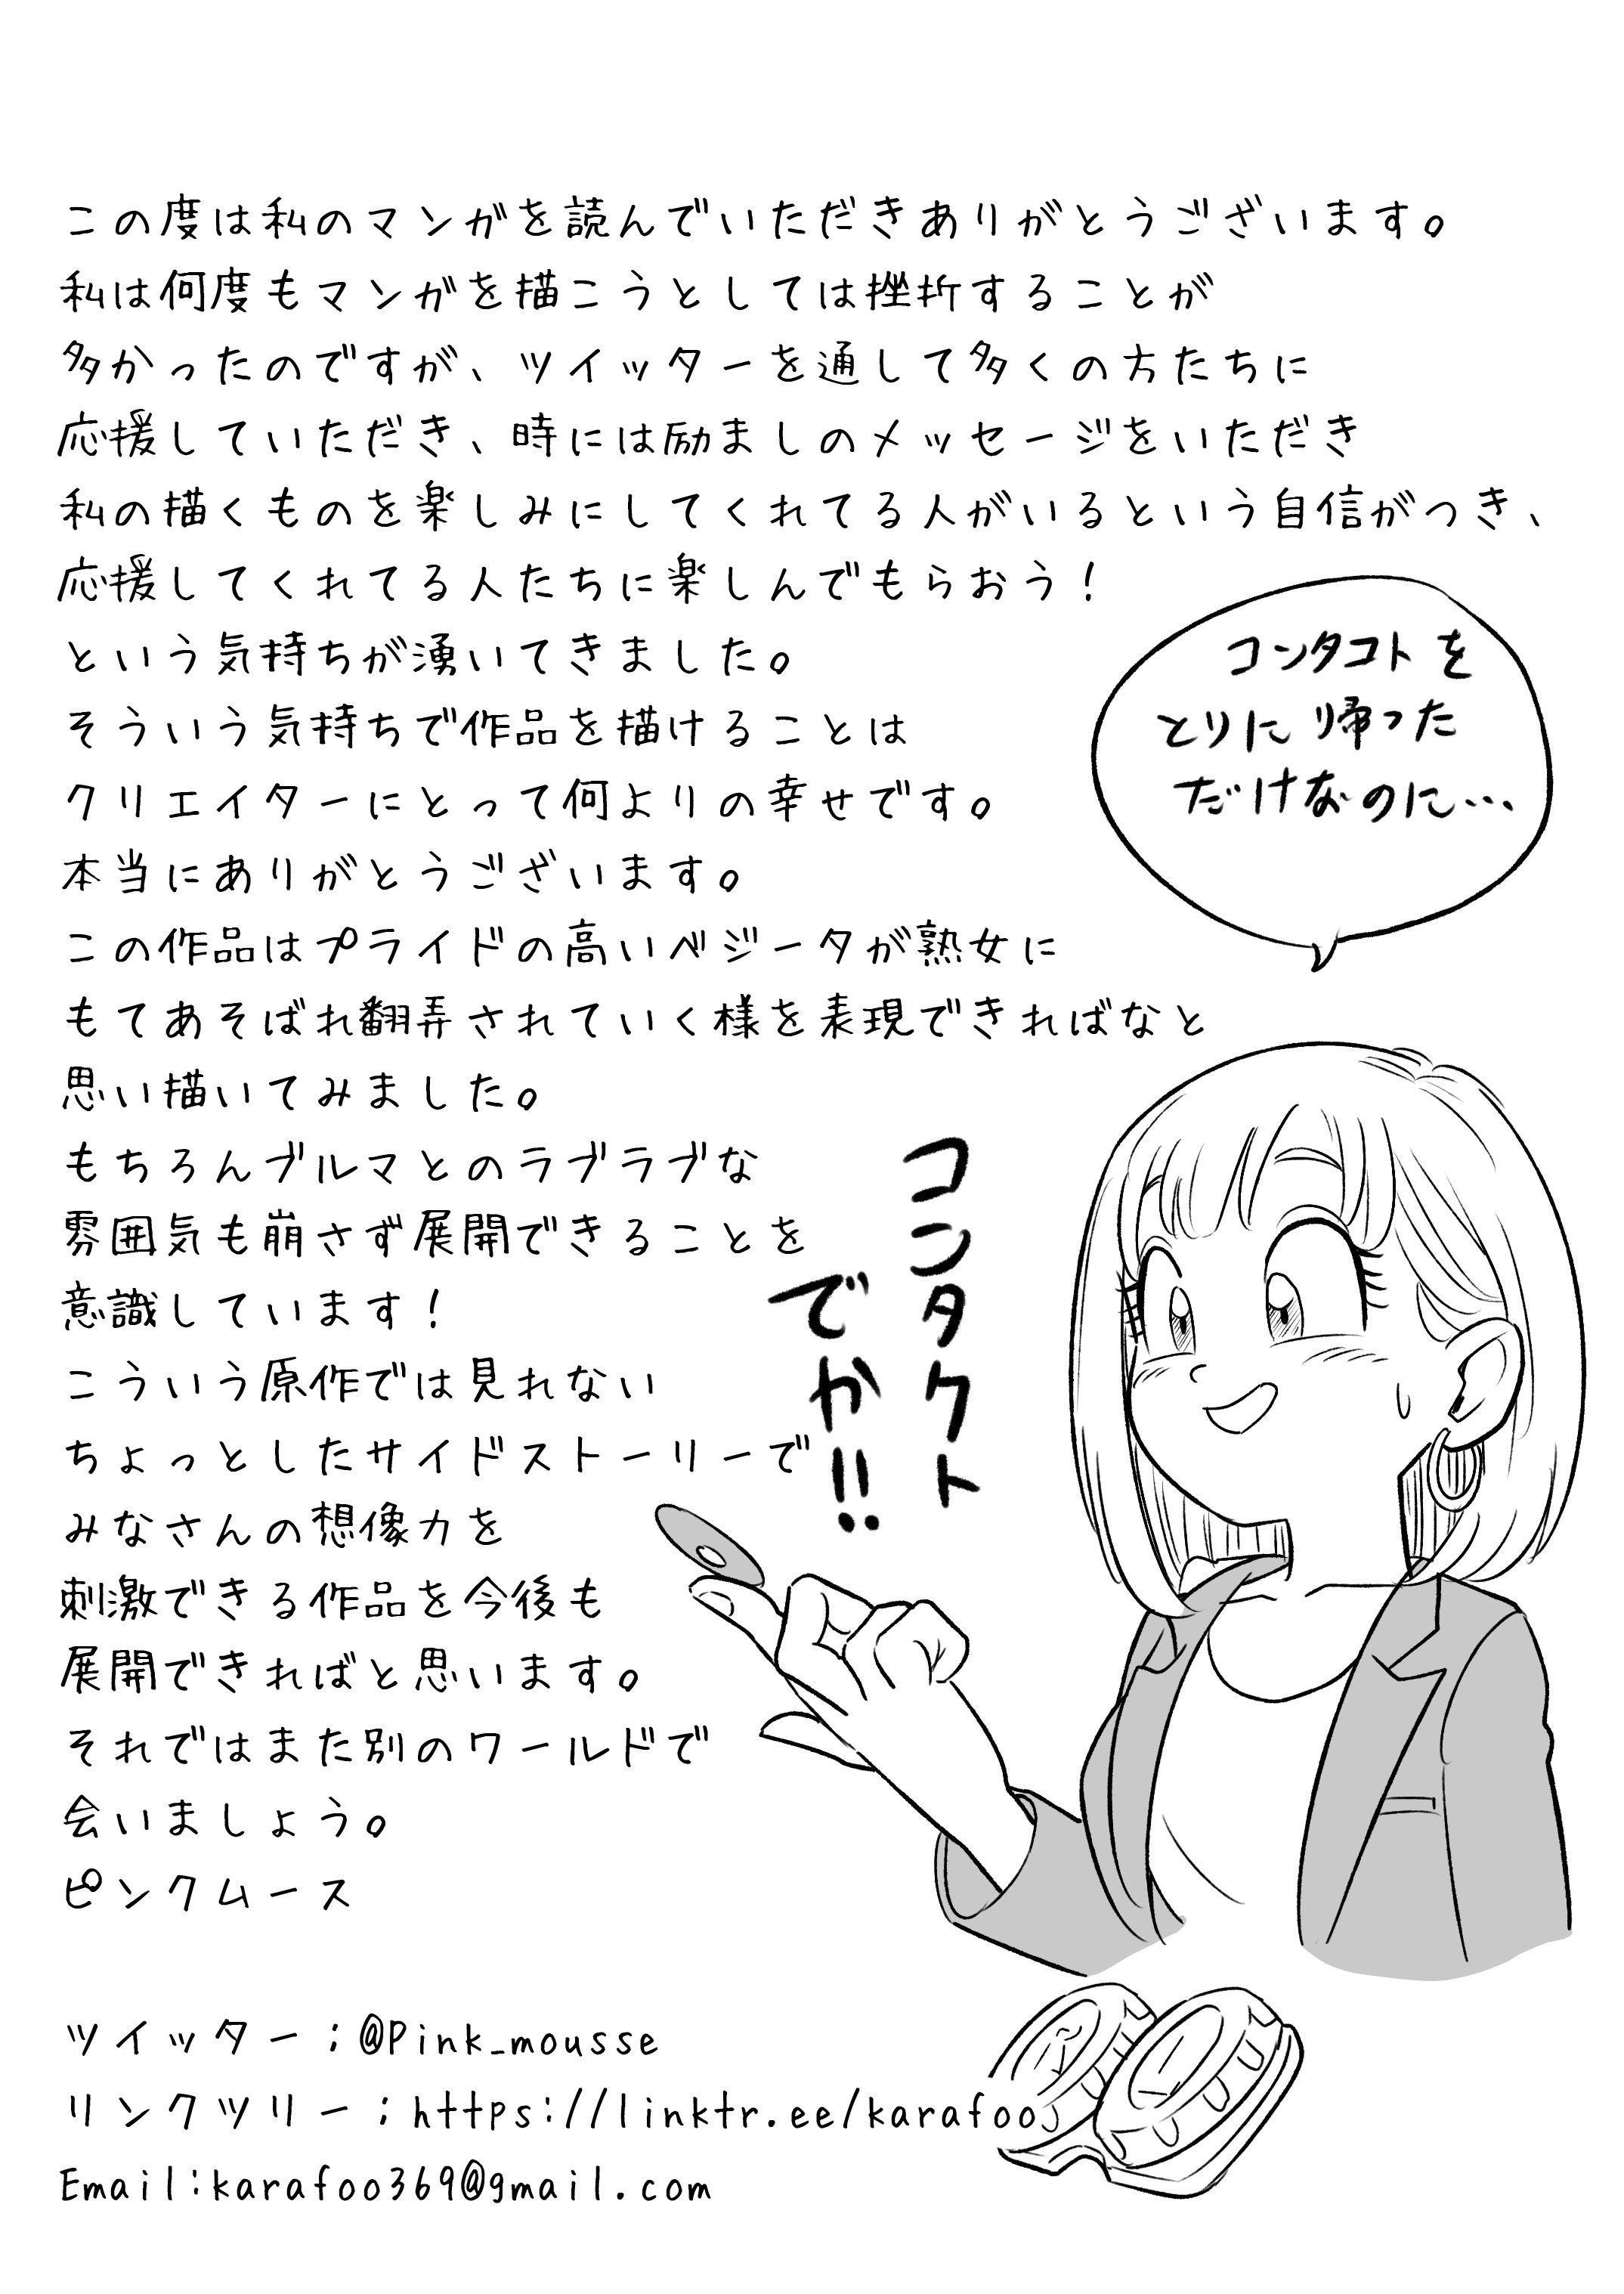 この度は私のマンガを読んでいただきありがとうございます。
私は何度もマンガを描こうとしては挫折することが
多かったのですが、ツイッターを通して多くの方たちに
応援していただき、時には励ましのメッセージをいただき
私の描くものを楽しみにしてくれてる人がいるという自信がつき、
応援してくれてる人たちに楽しんでもらおう!
という気持ちが湧いてきました。
そういう気持ちで作品を描けることは
クリエイターにとって何よりの幸せです。
本当にありがとうございます。
この作品はプライドの高いベジータが熟女に
もてあそばれ翻弄されていく様を表現できればなと
思い描いてみました。
もちろんブルマとのラブラブな
雰囲気も崩さず展開できることを
意識しています!
こういう原作では見れない
ちょっとしたサイドストーリーで
みなさんの想像力を
刺激できる作品を今後も
展開できればと思います。
それではまた別のワールドで
会いましょう。
ピンクムース
コンタコトを
とりに帰った
だけなのに…
コンタクト
でか!!
ツイッター:@Pink_mousse
リンクツリー:https://linktr.ee/karafoo
Email:karafoo369@gmail.com